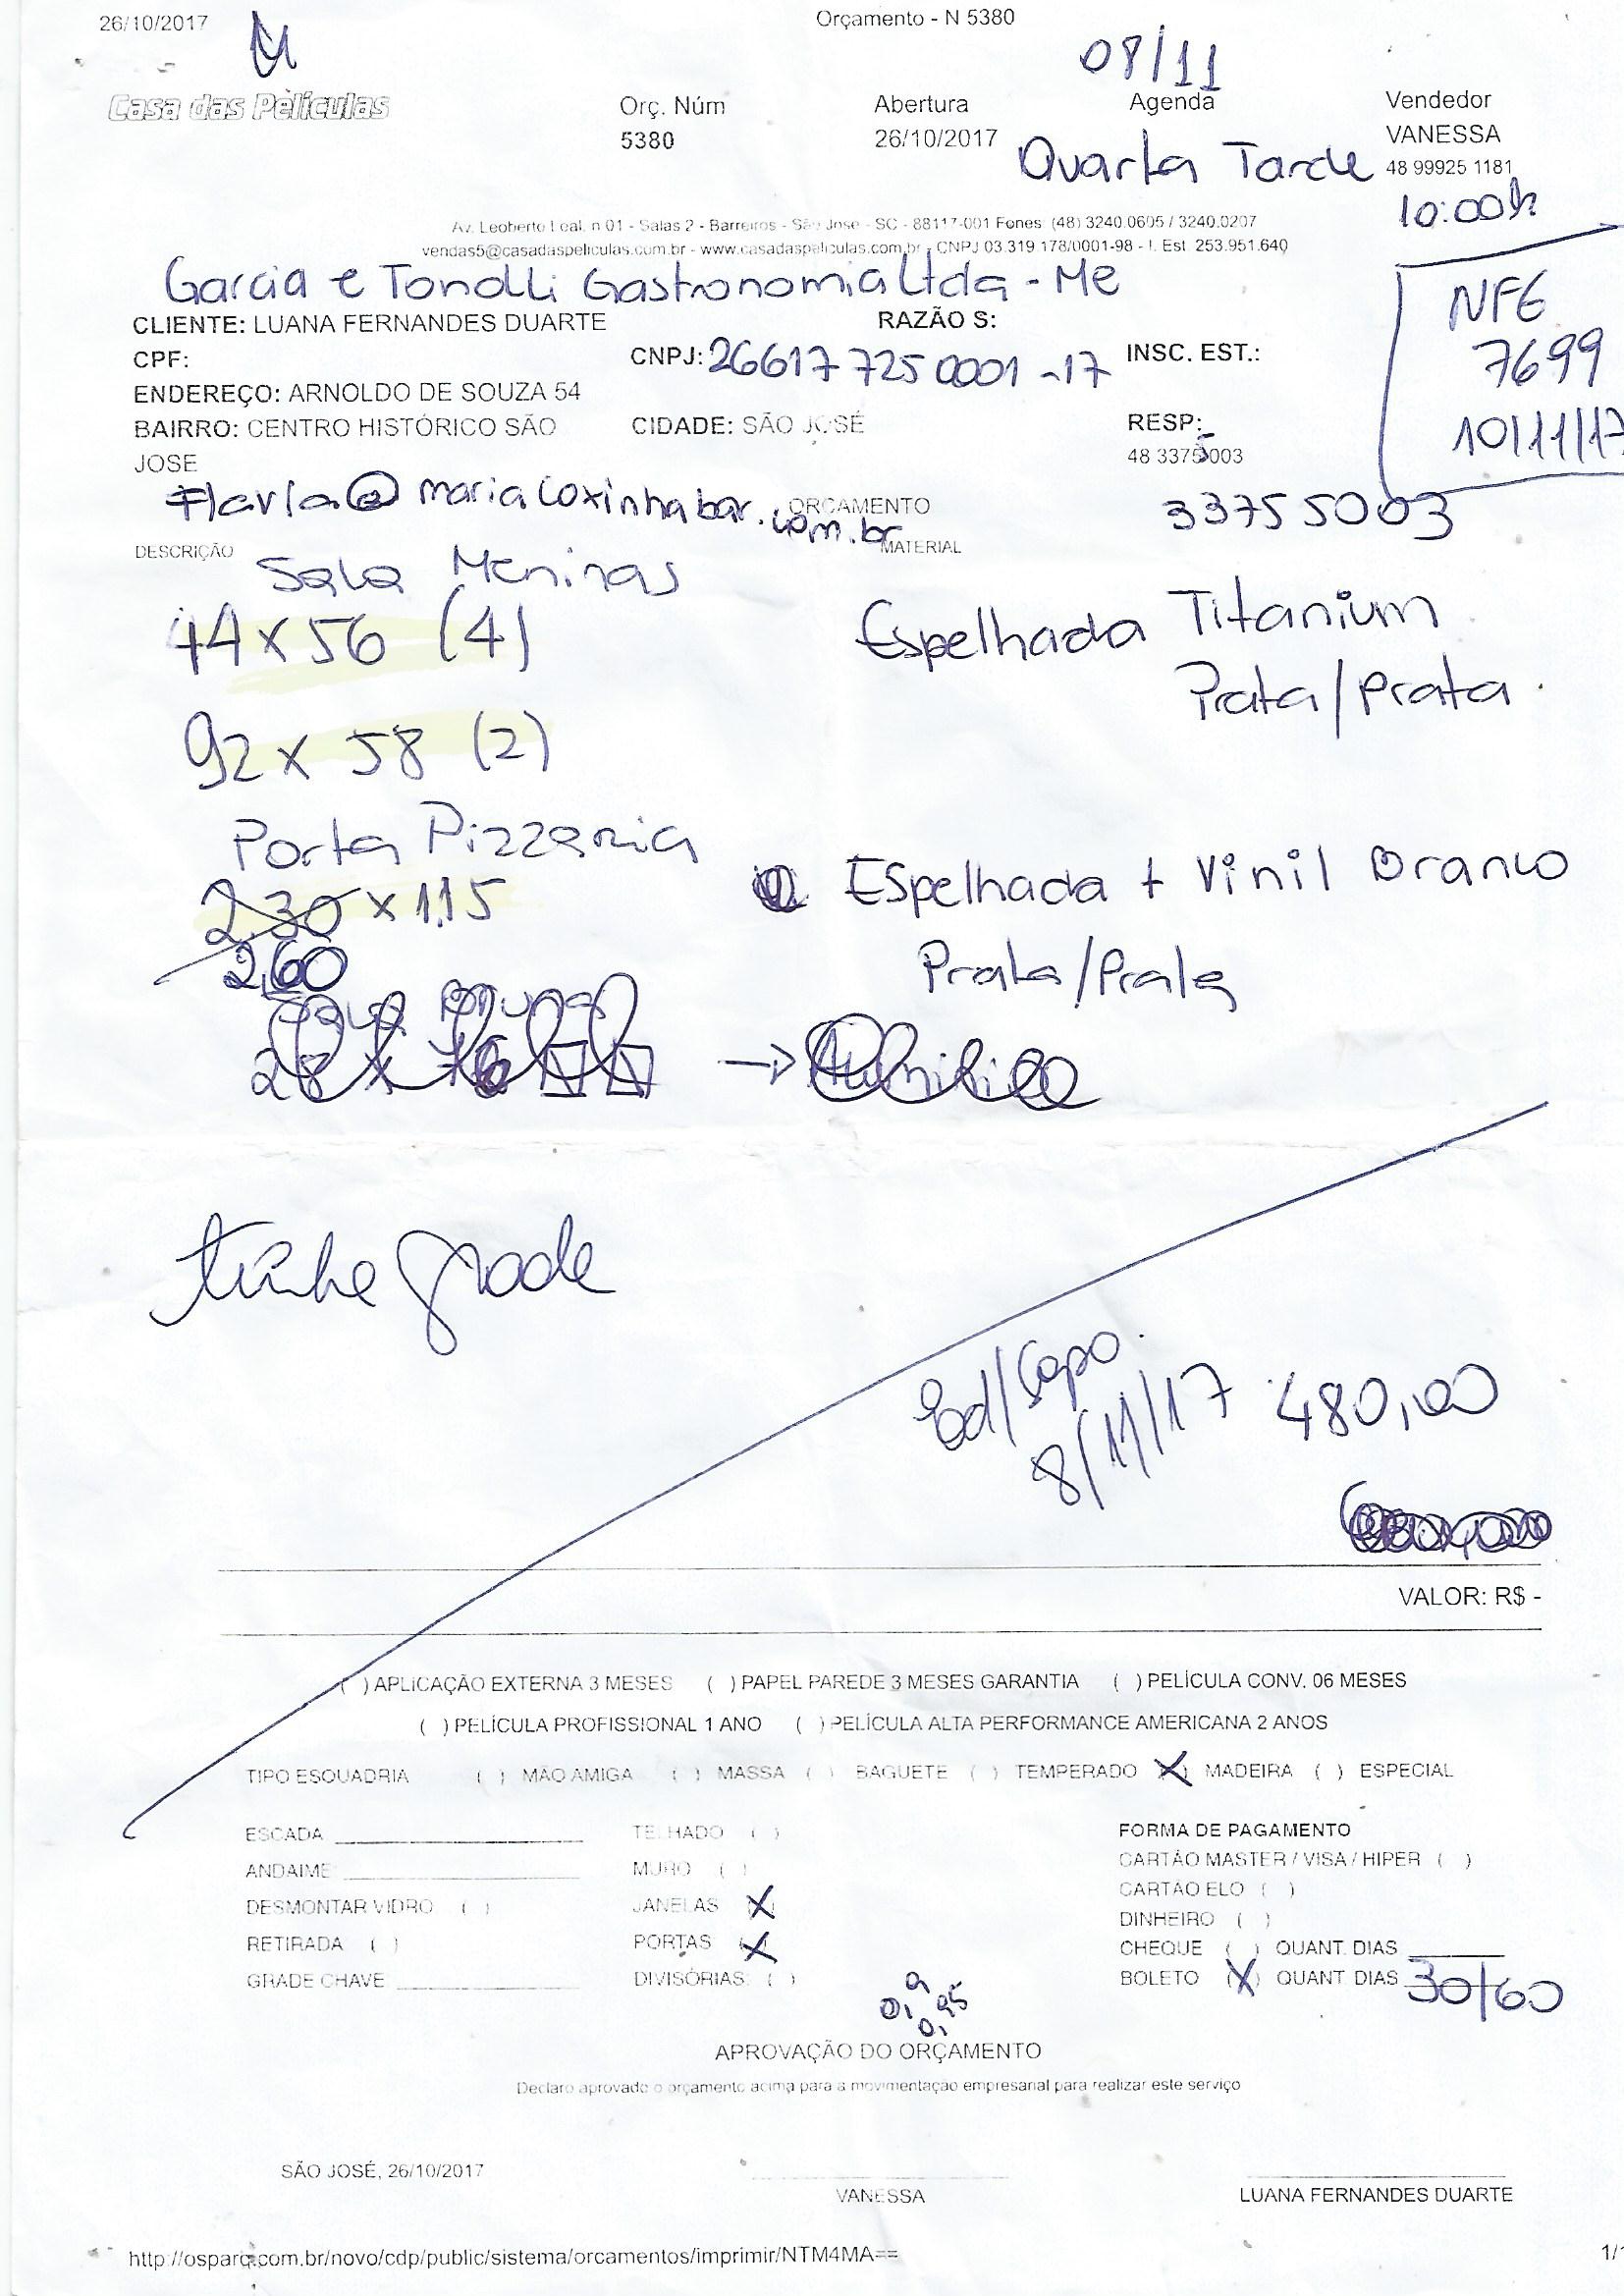 26/10/2017
Orçamento - N 5380
08/11
Casa das Películas
Orç. Núm
Abertura
Agenda
Vendedor
5380
26/10/2017
Quarta Tarde
VANESSA
48 99925 1181
10:00h
Av. Leoberto Leal, n 01 - Salas 2 - Barreiros - São Jose - SC - 88117-001 Fones: (48) 3240.0605 / 3240.0207
vendas5@casadaspeliculas.com.br - www.casadaspeliculas.com.br - CNPJ 03.319 178/0001-98 - I. Est 253.951.640
Garcia e Tonolli Gastronomia Ltda - Me
NFE
7699
10/11/17
CLIENTE: LUANA FERNANDES DUARTE
RAZÃO S:
CPF:
CNPJ: 26617 725 0001 -17
INSC. EST.:
ENDEREÇO: ARNOLDO DE SOUZA 54
BAIRRO: CENTRO HISTÓRICO SÃO
JOSE
CIDADE: SÃO JOSÉ
RESP:
48 33755003
Flavia@mariacoxinhabar.com.br
ORÇAMENTO
33755003
DESCRIÇÃO
MATERIAL
Sala Meninas
44 x 56 (4)
Espelhada Titanium
Prata/Prata.
92 x 58 (2)
Porta Pizzaria
2.30 x 1.15
Espelhada + Vinil Branco
2,60
Prata/Prata
28 x 76
tinha grade
Ed/Sapo.
8/11/17
480,00
VALOR: R$ -
( ) APLICAÇÃO EXTERNA 3 MESES ( ) PAPEL PAREDE 3 MESES GARANTIA ( ) PELÍCULA CONV. 06 MESES
( ) PELÍCULA PROFISSIONAL 1 ANO ( ) PELÍCULA ALTA PERFORMANCE AMERICANA 2 ANOS
TIPO ESQUADRIA ( ) MÃO AMIGA ( ) MASSA ( ) BAGUETE ( ) TEMPERADO (X) MADEIRA ( ) ESPECIAL
ESCADA
TELHADO ( )
FORMA DE PAGAMENTO
ANDAIME
MURO ( )
CARTÃO MASTER / VISA / HIPER ( )
DESMONTAR VIDRO ( )
JANELAS (X)
CARTÃO ELO ( )
DINHEIRO ( )
RETIRADA ( )
PORTAS (X)
CHEQUE ( ) QUANT. DIAS
GRADE CHAVE
DIVISÓRIAS: ( )
BOLETO (X) QUANT. DIAS 30/60
APROVAÇÃO DO ORÇAMENTO
Declaro aprovado o orçamento acima para a movimentação empresarial para realizar este serviço
SÃO JOSÉ, 26/10/2017
VANESSA
LUANA FERNANDES DUARTE
http://osparq.com.br/novo/cdp/public/sistema/orcamentos/imprimir/NTM4MA==